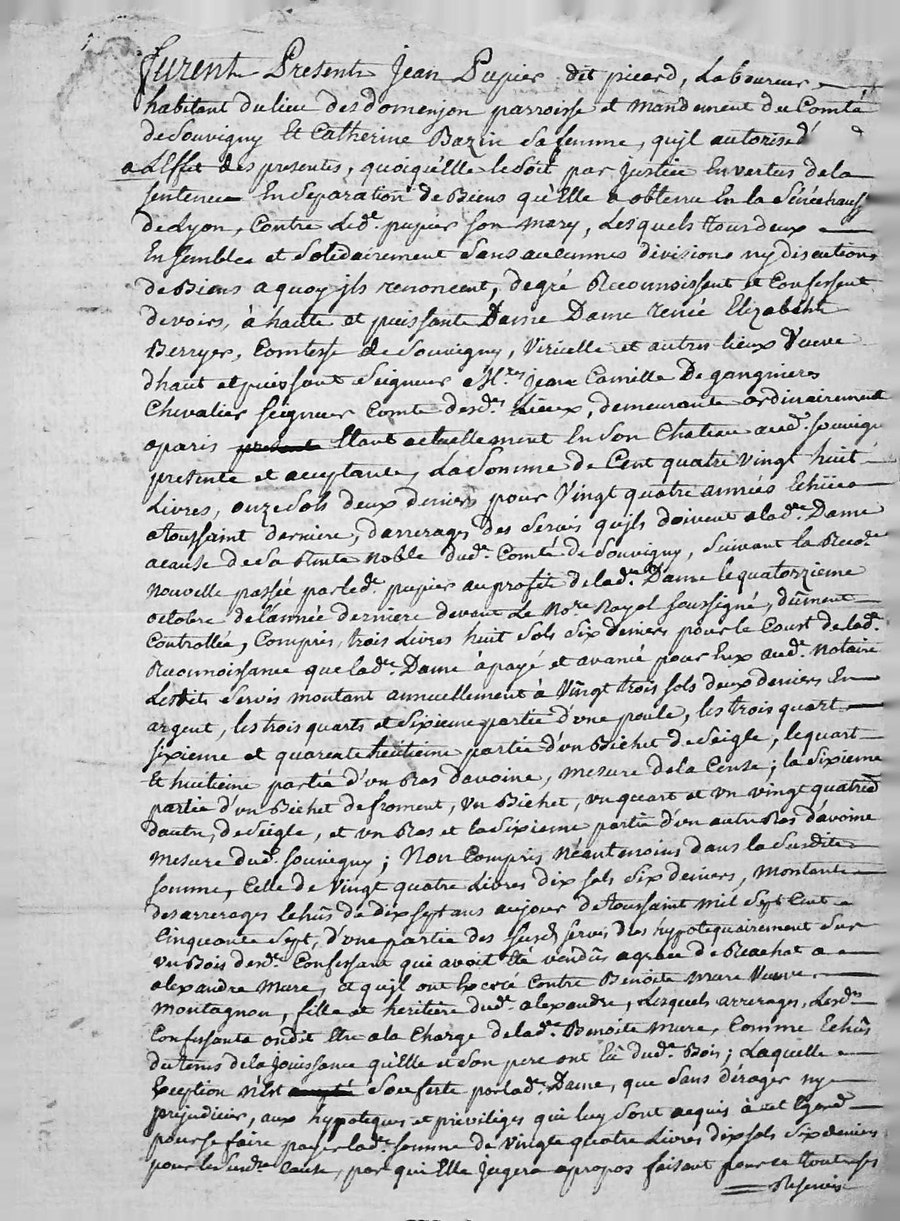 furent Presents Jean Pupier dit picard, Laboureur
habitant du lieu des domenjon parroisse et mandement du Comté
de Souvigny Et Catherine Bazin sa femme, qu'jl autorise
a L'Effet des presentes, quoiqu'Elle le soit par Justice En vertus de la
sentence En Separation de Biens qu'Elle a obtenue En la Sénéchaussé
de Lyon, Contre Led. pupier son mary, Lesquels tous deux
Ensemble et solidairement sans aucunnes divisions ny discutions
de Biens a quoy jls renoncent, de gré Reconnoissent et Confessent
devoirs, à haute et puissante Dame Dame renée Elizabeth
Berryer, Comtesse de Souvigny, Viricelle et autres lieux Veuve
d'haut et puissant Seigneur Mre Jean Camille De gangnieres
Chevalier seigneur Comte desd. Lieux, demeurante ordinairement
a paris Etant actuellement En son Chateau aud. souvigny
presente et acceptante, La somme de Cent quatre vingt huit
Livres, onze sols deux deniers pour Vingt quatre années Echües
a toussaint derniere, d'arrerages des servis qu'jls doivent a lad. Dame
acause de sa Rente Noble dud. Comté de Souvigny, suivant la Reco.ce
nouvelle passée par led. pupier au profit de lad. Dame le quatorzieme
octobre de l'année derniere devant Le No.re Royal soussigné, dûment
Controllée, Compris, trois Livres huit sols six deniers pour le Coust de lad.
Reconnoissance que lad. Dame à payé et avancé pour Eux aud. Notaire
Lesdits servis montant annuellement à Vingt trois sols deux deniers En
argent, les trois quarts et sixieme partie d'une poule, les trois quart
sixieme et quarente huitieme partie d'un Bichet de Seigle, le quart
Et huitieme partie d'un Ras d'avoine, mesure de la Cense; la sixieme
partie d'un Bichet de froment, un Bichet, un quart et un vingt quatrieme
d'autre, de Seigle, et un Ras et la sixieme partie d'un autre Ras d'avoine
mesure dud. souvigny; Non Compris Néantmoins dans la susdite
somme, Celle de Vingt quatre Livres dix sols six deniers, montante
des arrerages Echûs de dix sept ans au jour de toussaint mil sept Cent
Cinquante sept, d'une partie des susd. servis dûs hypotequairement sur
un Bois desd. Confessant qui avoit Eté vendûs a grace de Reachat a
alexandre Mure, et qu'jl ont Excoté Contre Benoite mure Veuve
montagnon, fille et heritiere dud. alexandre, Lesquels arrerages, Lesd.
Confessants ondit Etre a la Charge de lad. Benoite Mure, Comme Echûs
du tems de la jouissance qu'Elle et son pere ont Eû dud. Bois; Laquelle
Exception n'Est soufferte par lad. Dame, que sans déroger ny
préjudicier, aux hypoteques et priviléges qui luy sont acquis à cet Egard
pour se faire payer lad. somme de vingt quatre Livres dix sols six deniers
pour la susd. Cause, par qui Elle jugera apropos faisant pour ce toutes ses
Reserves